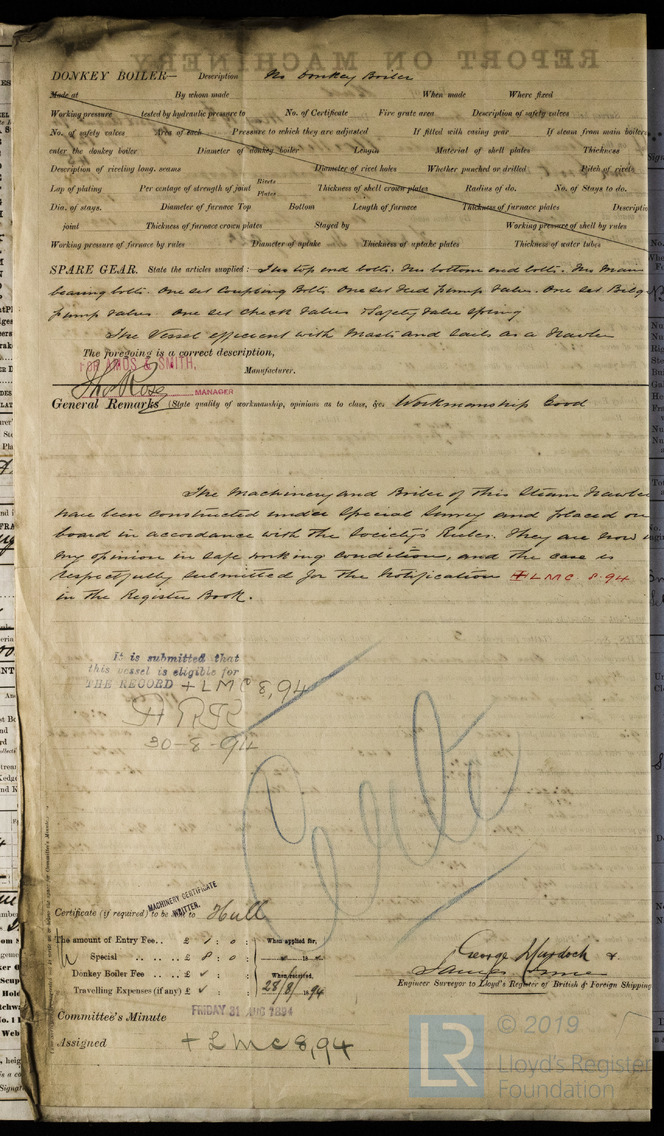 REPORT ON MACHINERY
DONKEY BOILER— Description No Donkey Boiler
Made at By whom made When made Where fixed
Working pressure tested by hydraulic pressure to No. of Certificate Fire grate area Description of safety valves
No. of safety valves Area of each Pressure to which they are adjusted If fitted with easing gear If steam from main boilers
enter the donkey boiler Diameter of donkey boiler Length Material of shell plates Thickness
Description of riveting long. seams Diameter of rivet holes Whether punched or drilled Pitch of rivets
Lap of plating Per centage of strength of joint Rivets Plates Thickness of shell crown plates Radius of do. No. of Stays to do.
Dia. of stays. Diameter of furnace Top Bottom Length of furnace Thickness of furnace plates Descriptio
joint Thickness of furnace crown plates Stayed by Working pressure of shell by rules
Working pressure of furnace by rules Diameter of uptake Thickness of uptake plates Thickness of water tubes
SPARE GEAR. State the articles supplied:— Two top end bolts. Two bottom end bolts. Two Main
bearing bolts. One set Coupling Bolts. One set Feed pump Valves. One set Bilge
pump Valves. One set Check Valves & Safety Valve Spring
The Vessel efficient with Masts and Sails as a Trawler
The foregoing is a correct description,
FOR AMOS & SMITH, Manufacturer.
MANAGER
General Remarks (State quality of workmanship, opinions as to class, &c. Workmanship Good
The Machinery and Boiler of this Steam Trawler
have been constructed under Special Survey and placed on
board in accordance with the Society's Rules. They are now in
my opinion in safe working conditions, and the case is
respectfully submitted for the Notification + LMC 8.94
in the Register Book.
It is submitted that
this vessel is eligible for
THE RECORD + LMC 8,94
30-8-94
MACHINERY CERTIFICATE
WRITTEN.
Certificate (if required) to be sent to Hull
The amount of Entry Fee.. £ 1 : 0 : When applied for,
Special .. .. .. £ 8 : 0 :
Donkey Boiler Fee .. .. £ : : When received,
Travelling Expenses (if any) £ : : 28/8/1894
George Murdoch &
Engineer Surveyor to Lloyd's Register of British & Foreign Shipping
Committee's Minute FRIDAY 31 AUG 1894
Assigned + LMC 8,94
LR
© 2019
Lloyd's Register
Foundation